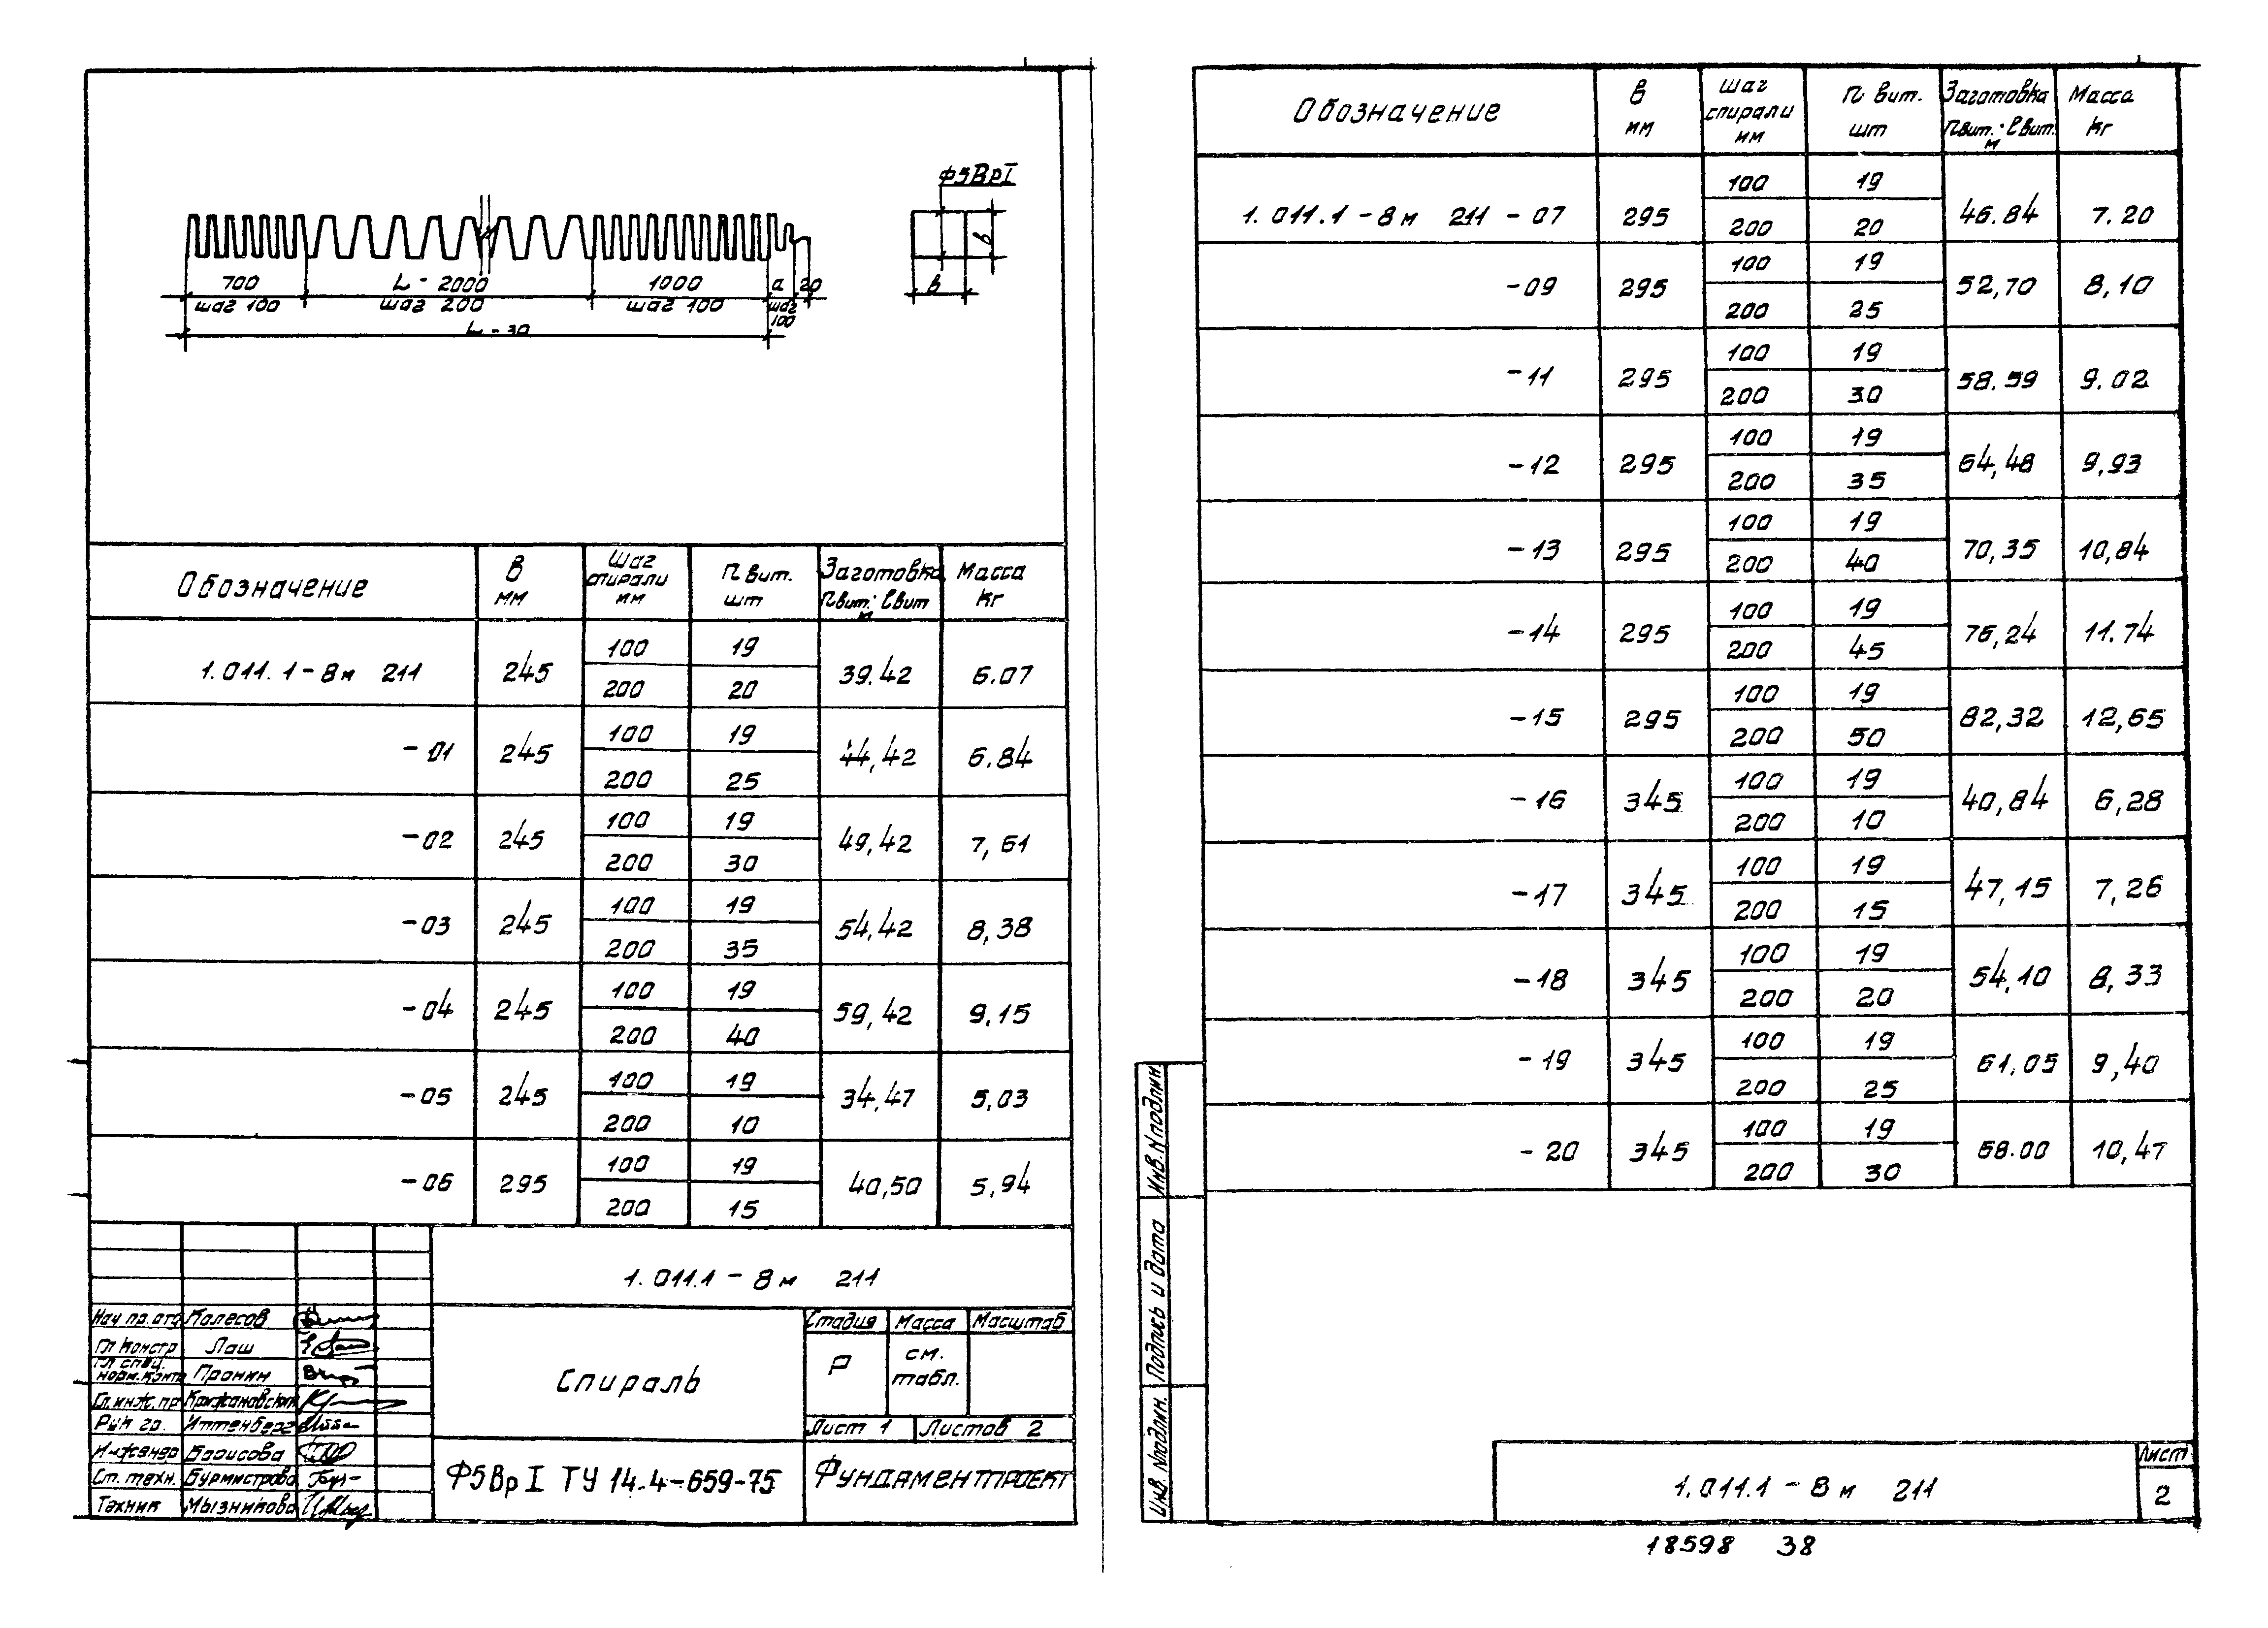 ф5ВрI
700 L - 2000 1000 а 20
шаг 100 шаг 200 шаг 100 шаг 100
L - 30
в
в
Обозначение В мм Шаг спирали мм n вит. шт Заготовка nвит.·ℓвит м Масса кг
1.011.1-8м 211 245 100 19 39.42 6.07
200 20
-01 245 100 19 44,42 6.84
200 25
-02 245 100 19 49,42 7,61
200 30
-03 245 100 19 54,42 8,38
200 35
-04 245 100 19 59,42 9,15
200 40
-05 245 100 19 34,47 5,03
200 10
-06 295 100 19 40,50 5,94
200 15
1.011.1-8м 211
Нач пр. отд Колесов
Гл констр Лаш
Гл спец. норм.контр Пронин
Гл.инж.пр Кржановский
Рук гр. Иттенберг
Инженер Борисова
Ст. техн. Бурмистрова
Техник Мызникова
Спираль
Стадия Масса Масштаб
Р см. табл.
Лист 1 Листов 2
Ф5ВрI ТУ 14.4-659-75
Фундаментпроект
Обозначение В мм шаг спирали мм n вит. шт Заготовка nвит.·ℓвит. м Масса кг
1.011.1-8м 211-07 295 100 19 46.84 7.20
200 20
-09 295 100 19 52,70 8,10
200 25
-11 295 100 19 58.59 9.02
200 30
-12 295 100 19 64,48 9,93
200 35
-13 295 100 19 70,35 10,84
200 40
-14 295 100 19 76,24 11.74
200 45
-15 295 100 19 82,32 12,65
200 50
-16 345 100 19 40,84 6,28
200 10
-17 345 100 19 47,15 7,26
200 15
-18 345 100 19 54,10 8,33
200 20
-19 345 100 19 61,05 9,40
200 25
-20 345 100 19 68.00 10,47
200 30
Инв.N подлин.
Подпись и дата
Инв. Nподлин.
1.011.1-8м 211
Лист
2
18598 38